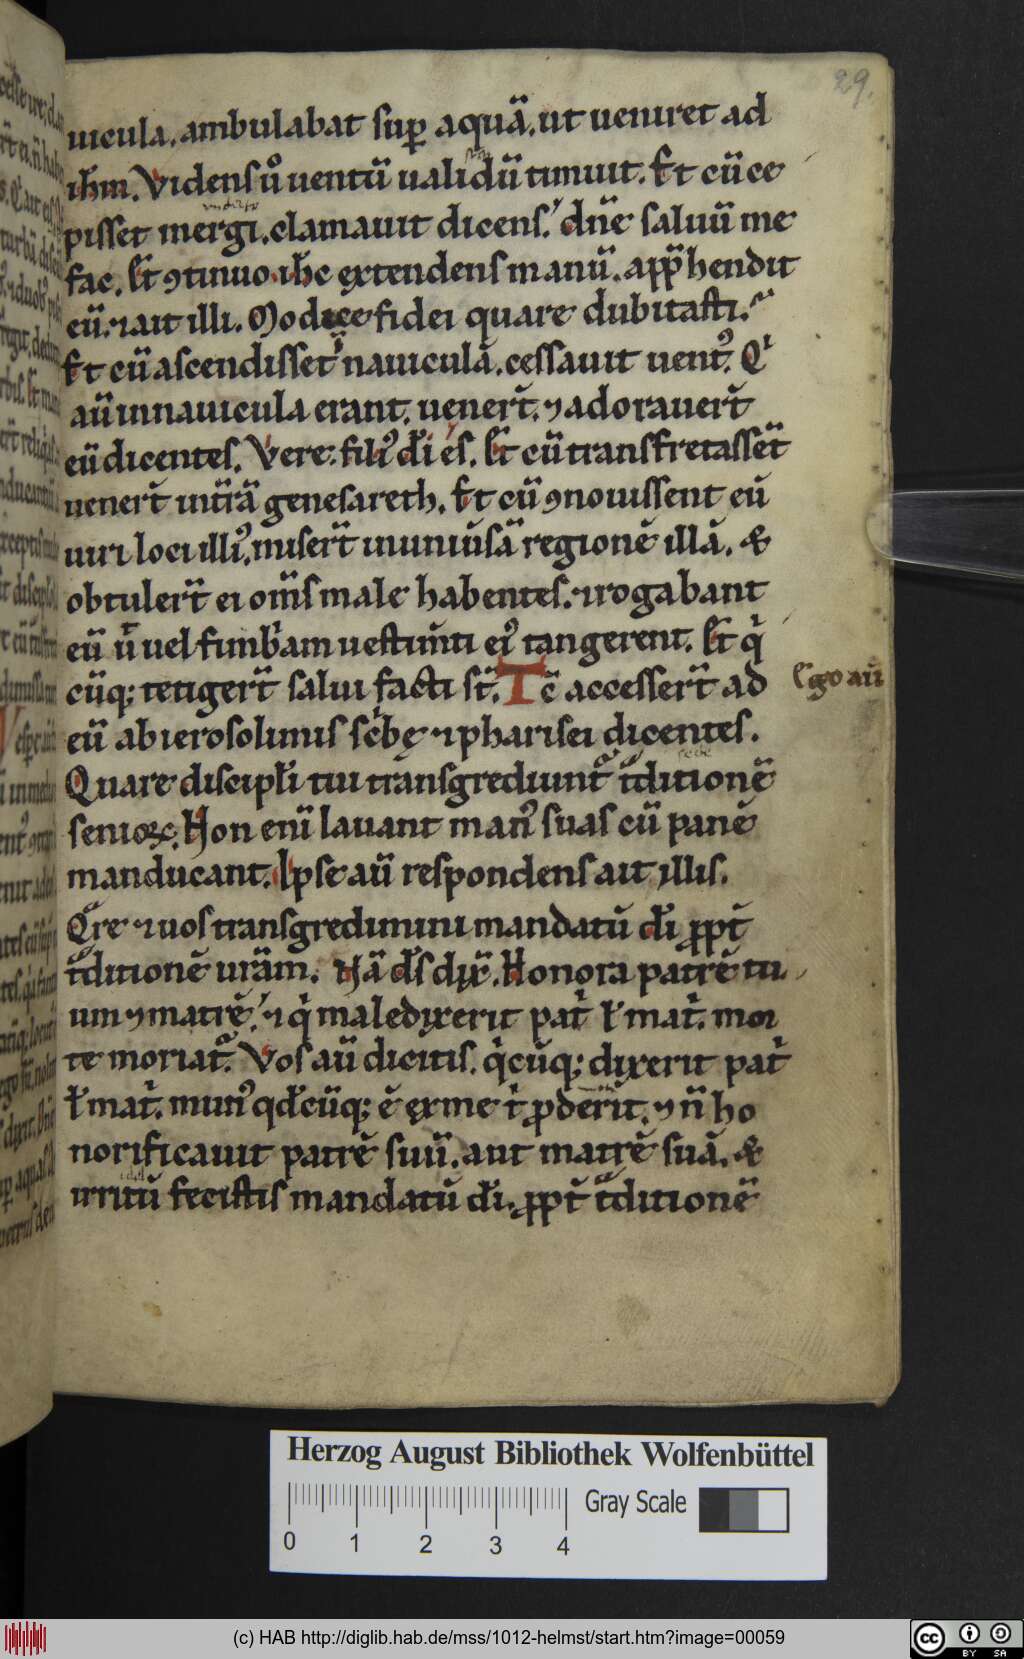 29.
uicula. ambulabat sup̱ aquā. ut ueniret ad
ihm̄. Videns ůo uentū ualidū timuit. Et cū ce
pisset mergi. clamauit dicens. dn̄e saluū me
fac. Et ꝯtinuo ihc̄ extendens manū. app̄hendit
eū. ⁊ ait illi. Modice fidei quare dubitasti.
Et cū ascendisset nauiculā. cessauit uentꝰ. Qͥ
aū in nauicula erant. uener̄t. ⁊ adorauer̄t
eū dicentes. Vere filiꝰ dī es. Et cū transfretasset̄
uener̄t in t̄rā genesareth. Et cū ꝯnouissent eū
uiri loci illiꝰ. miser̄t in uniūsā regionē illā. &
obtuler̄t ei om̄s male habentes. ⁊ rogabant
eū ut̄ uel fimbͥam uestim̄ti eiꝰ tangerent. Et qͥ
cūq; tetiger̄t salui facti st̄. Tc̄ accesser̄t ad
Ego aū
eū ab ierosolimis scͥbę ⁊ pharisei dicentes.
Quare discipl̄i tui transgrediunt᷑ tͣditionē
senioꝝ. Non enī lauant manꝰ suas cū panē
manducant. Ipse aū respondens ait illis.
Qͣre ⁊ uos transgredimini mandatū dī ꝓpt̄
tͣditionē ur̄am. Nā ds̄ dix̄. Honora patrē tu
um ⁊ matrē. ⁊ qͥ maledixerit patͥ ł matͥ. mor
te moriat᷑. Vos aū dicitis. qͥcūq; dixerit patͥ
ł matͥ. munꝰ qd̄cūq; ē ex me tͥ ꝓderit. ⁊ n̄ ho
norificauit patrē suū. aut matrē suā. &
irritū fecistis mandatū dī. ꝓpt̄ tͣditionē
Herzog August Bibliothek Wolfenbüttel
0 1 2 3 4
Gray Scale
(c) HAB http://diglib.hab.de/mss/1012-helmst/start.htm?image=00059
cc BY SA